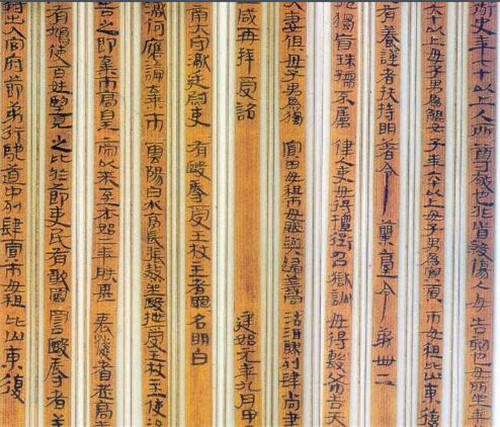 御史年七十以上人所尊敬也非首殺傷人毋告劾也毋所坐年
六十以上毋子男為鯤女子年六十以上毋子男為寡賈市毋租比山東復
有養謹者扶持明著令 蘭臺令第卌二
孤獨盲珠孺不屬律人吏毋得擅徵召獄訟毋得毄布告天
夫妻俱毋子男為獨寡田毋租市毋賦與歸義同沽酒醪列肆尚書
咸再拜受詔 建始元年九月甲
南大守讞廷尉吏有毆辱受王杖主者罪名明白
讞何應論棄市雲陽白水亭長張熬坐毆抴受王杖主使治
告之即棄市高皇帝以來至本始二年朕甚哀憐耆老高年
有鳩使百姓望見之比於節吏民有敢罵詈毆辱者
得出入官府節弟行馳道中列肆賈市毋租比山東復